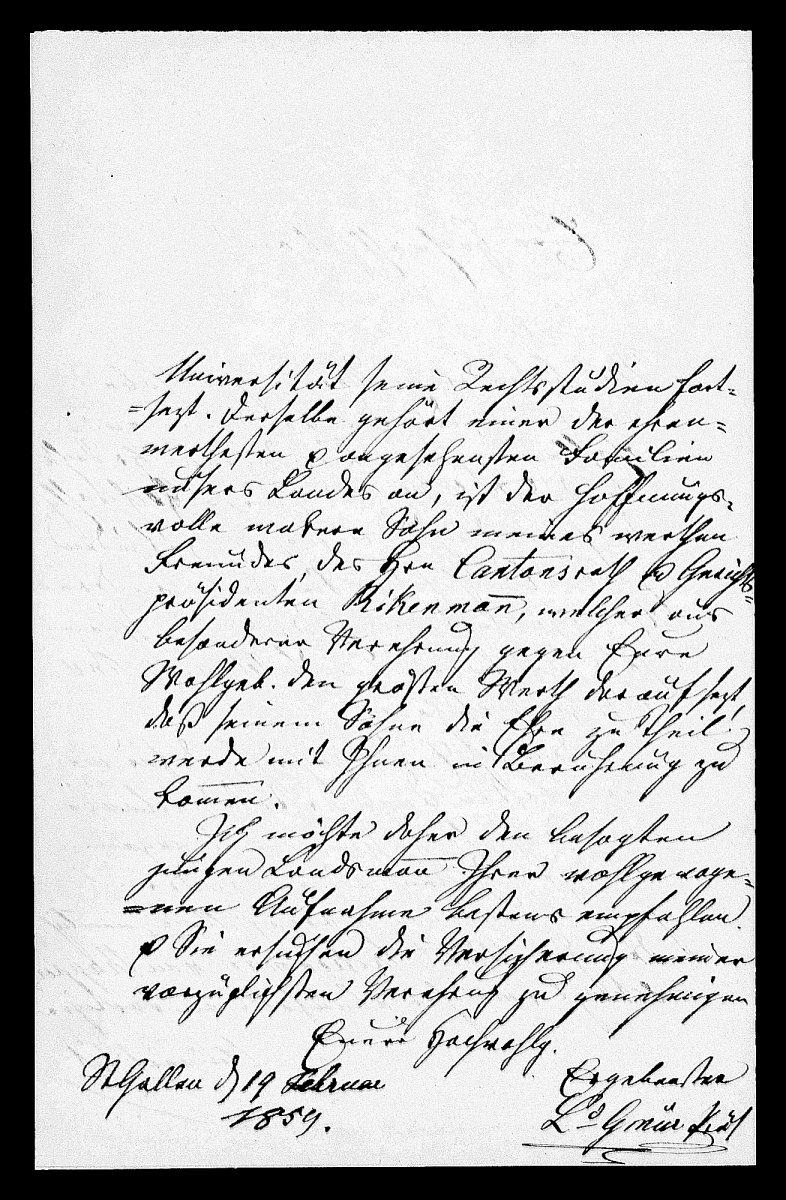 Universität seine Rechtsstudien fort-
=sezt. Derselbe gehört einer der ehren-
werthesten & angesehensten Familien
unsers Landes an, ist der hoffnungs-
volle wakere Sohn meines werthen
Freundes, des Hrn Cantonsrath & Gerichts-
präsidenten Rikenmañ, welcher aus
besonderer Verehrung gegen Eure
Wohlgeb. den grösten Werth darauf sezt,
daß seinem Sohne die Ehre zu Theil
werde mit Ihnen in Berührung zu
kom̄en.
Ich möchte daher den besagten
jungen Landsmañ Ihrer wohlgewoge-
=nen Aufnahme bestens empfehlen
& Sie ersuchen die Versicherung meiner
vorzüglichsten Verehrung zu genehmigen
Euer Hochwohlg.
St Gallen d 19 Februar
1859.
Ergebenster
Ld Gmür Präs